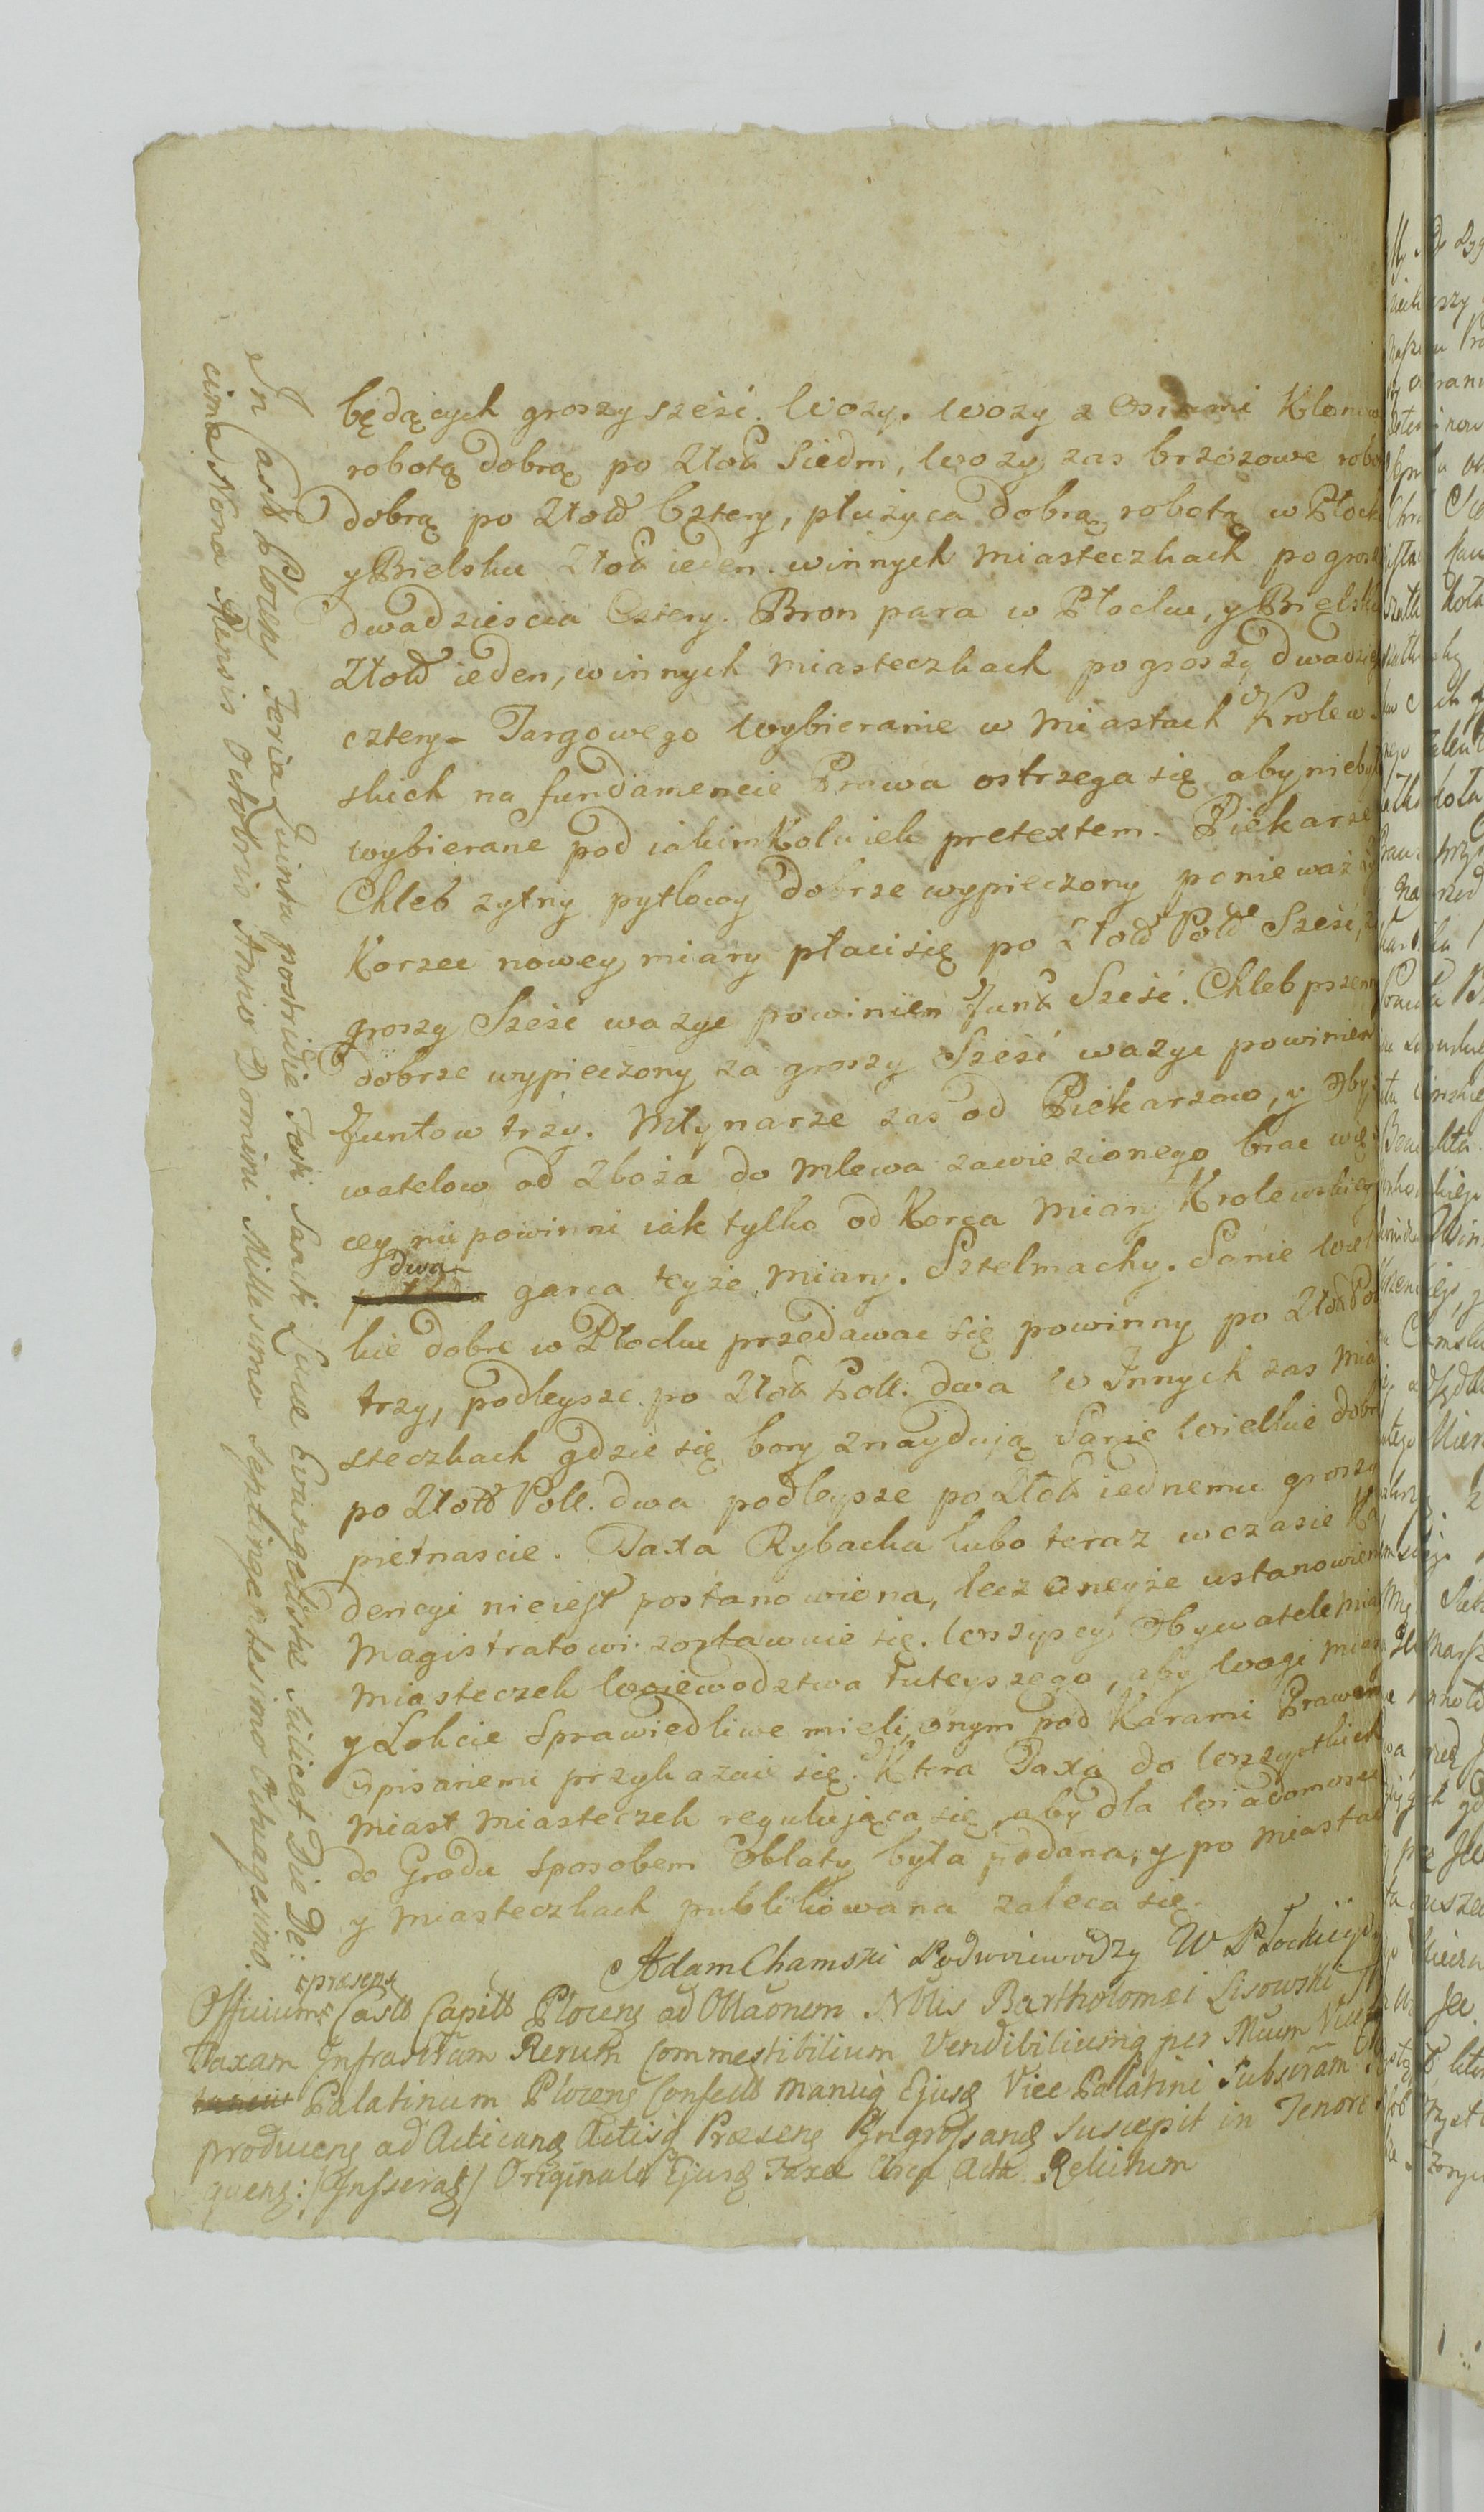 będących groszy sześć. Wozy. Wozy z Osiami Klonow
robotą dobrą po Złotł Siedm, Wozy zas brzozowe robo
dobrą po Złotł Cztery, płużyca dobrą robotą w Płock
y Bielsku Złotł ieden. winnych miasteczkach po grosz
dwadziescia Cztery. Bron para w Płocku, y Bielsku
Złotł ieden, winnych miasteczkach po groszy dwadzie
cztery– Targowego Wybieranie w Miastach Krolew-
skich na fundamencie Prawa ostrzega się, aby nieby
wybierane pod iakimkolwiek pretextem. Piekarze
Chleb zytny pytlowy dobrze wypieczony poniewaz
Korzec nowey miary płaci się po Złotł Polł Sześć, z
groszy Sześć wazyc powinien Funt Sześć. Chleb pszen
dobrze wypieczony za groszy Sześć wazyc powinien
Funtow trzy. Młynarze zas od Piekarzow, y Oby
watelow od Zboża do Mlewa zawiezionego brac wię
cey nie powinni iak tylko od Korca Miary Krolewskiey
dwa–
garca teyże Miary. Sztelmachy. Sanie Wiel
kie dobre w Płocku przedawac się powinny po Złotł Pol
trzy, podleysze po Złotł Poll. dwa w Innych zas Mia
steczkach gdzie się bory znayduią Sanie Wielkie dobr
po Złotł Poll. dwa podleysze po Złotł iednemu groszy
piętnascie. Taxa Rybacka lubo teraz w czasie Ka
dencyi nieiest postanowiona, lecz oneyże ustanowien
Magistratowi zostawuie się. Wszyscy Obywatele mia
Miasteczek Woiewodztwa tuteyszego, aby Wagi miary
y Łokcie Sprawiedliwe mieli, onym pod Karami Prawem
Opisanemi przykazuie się. Ktora Taxa do Wszystkich
Miast Miasteczek reguluiąca się, aby dla Wiadomosci
do Grodu Sposobem Oblaty była podana, y po Miastac
y Miasteczkach publikowana zaleca się.
Adam Chamski Podwoiewodzy W Płockiy
In Castro Plocen Feria Quinta postridie Festi Sancti Lucae Evangelistae scilicet Die De:
cima Nona Mensis Octobris Anno Domini Millesimo Septingentesimo Octuagesimo.
præsens
Officium Castr Capitl Plocens ad Oblaonem Nblis Bartholomæi Lisowski
Taxam Infrascriptam Rerum Commestibilium Vendibiliumq per Mcum Vice
Palatinum Plocens Confectt manuq Ejusd Vice Palatini Subscrām
producens ad Acticand Actisq Præsens Ingrossand suscepit in Tenore
quens: (Inseratr) Originale Ejusd Taxæ Circa Acta Relictum